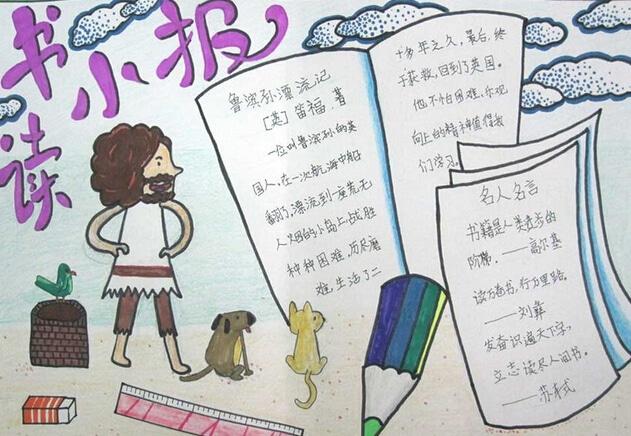 读书小报
鲁滨孙漂流记
[英]笛福 著
一位叫鲁滨孙的英
国人，在一次航海中船
翻了，漂流到一座荒无
人烟的小岛上，战胜
种种困难，历尽磨
难，生活了二
十多年之久，最后，终
于获救，回到了英国。
他不怕困难、乐观
向上的精神值得我
们学习。
名人名言
书籍是人类进步的
阶梯。——高尔基
读万卷书，行万里路。
——刘彝
发奋识遍天下字，
立志读尽人间书。
——苏轼